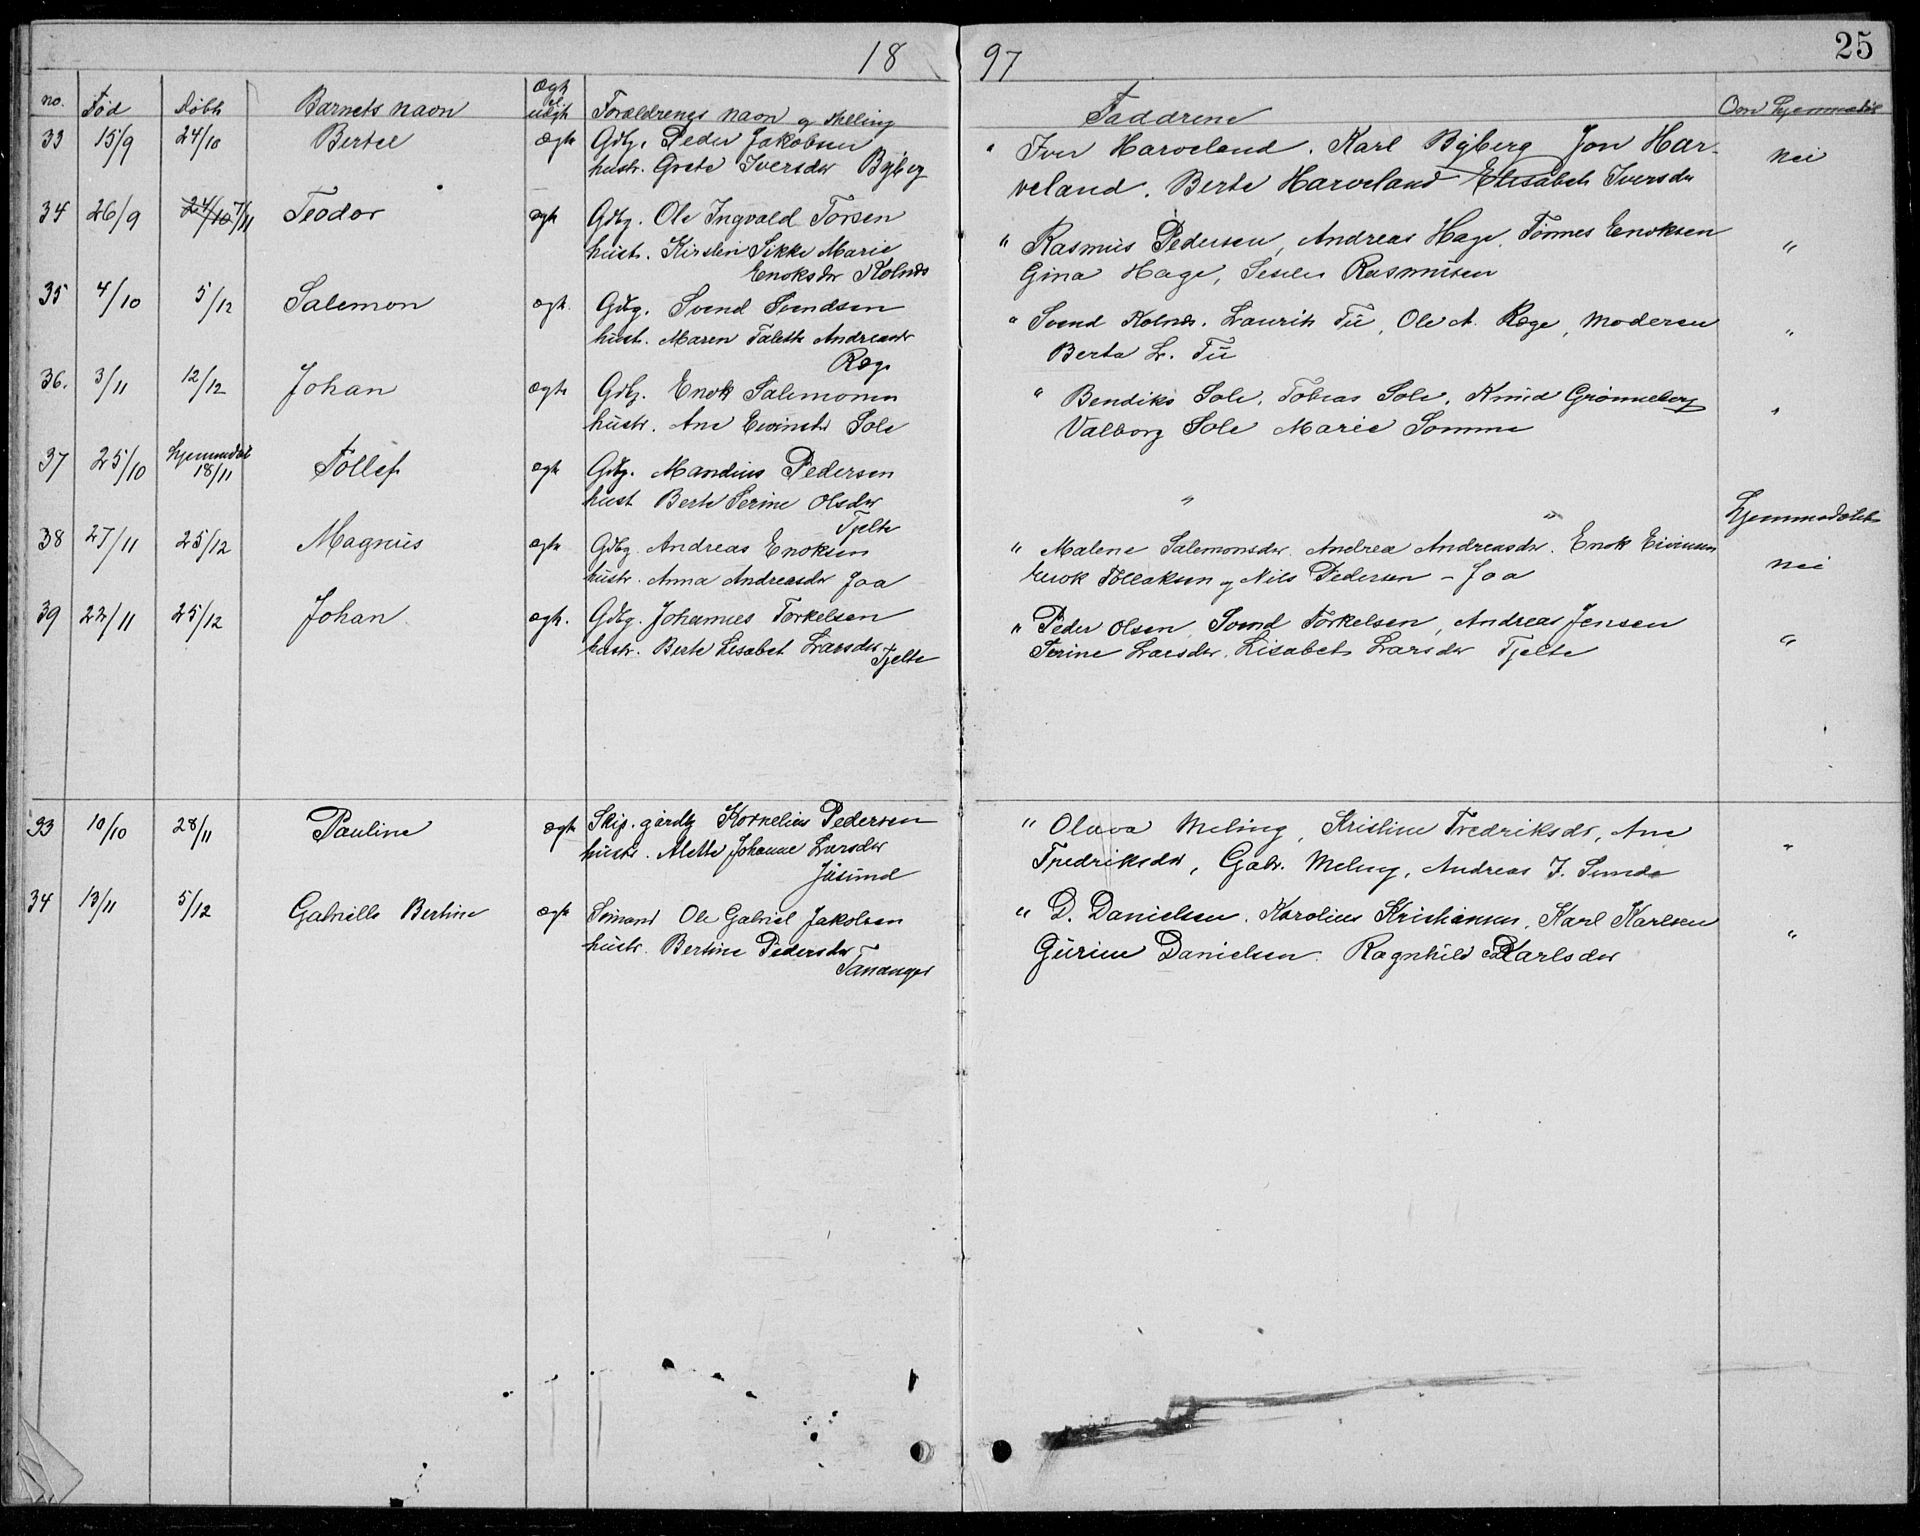 18 97 25
no. Fød Døbt Barnets navn Ægt el. uægt Foraldrenes navn og stilling Faddrene Om hjemmedøbt
33 15/9 24/10 Bertel ægte Gdbg. Peder Jakobsen " Iver Harveland. Karl Byberg Jon Har- nei
hustr. Grete Iversdr Byberg veland. Berte Harveland Elisabeth Iversdr
34 26/9 24/10 7/11 Teodor ægt Gdbg. Ole Ingvald Torsen " Rasmus Pedersen, Andreas Hage, Tønnes Enoksen "
hustr. Kirsten Sikke Marie Gina Hage, Rasmusen
Enoksdr Kolnes
35 4/10 5/12 Salemon ægt. Gdbg. Svend Svendsen " Svend Kolnes. Laurits Tu, Ole A. Ræge, moderen "
hust. Maren Talette Andreasdr Berta L. Tu
Ræge
36. 3/11 12/12 Johan ægte Gdbg. Enok Salemonsen " Bendiks Sole, Tobias Sole, Knud Grønneberg "
hustr. Ane Eivindsdr Sole Valborg Sole Marie Somme
37 25/10 hjemmedøbt 18/11 Tollef ægt Gdbg. Mandius Pedersen " " Hjemmedøbt
hust Berte Serine Olsdr
Tjelte
38 27/11 25/12 Magnus ægte Gdbg. Andreas Enoksen " Malene Salemonsdr. Andrea Andreasdr. Enok Eivinsen nei
hustr. Anna Andreasdr Joa Enok Tollaksen og Nils Pedersen - Joa
39 22/11 25/12 Johan ægt. Gdbg. Johannes Torkelsen " Peder Olsen, Svend Torkelsen, Andreas Jensen "
hustr. Berte Lisabet Larsdr Tjelte Serine Larsdr. Lisabet Larsdr Tjelte
33 10/10 28/11 Pauline ægte Skip. gårdbg Kornelius Pedersen " Olava Meling, Kristine Fredriksdr, Ane "
hustr. Alette Johanne Larsdr Fredriksdr, Gabr. Meling, Andreas J. Sunde
Jåsund
34 13/11 5/12 Gabrielle Bertine ægte Sømand Ole Gabriel Jakobsen " D. Danielsen. Karolius Kristiansen, Karl Karlsen "
hustr. Bertine Pedersdr Gurine Danielsen. Ragnhild Karlsdr
Tananger